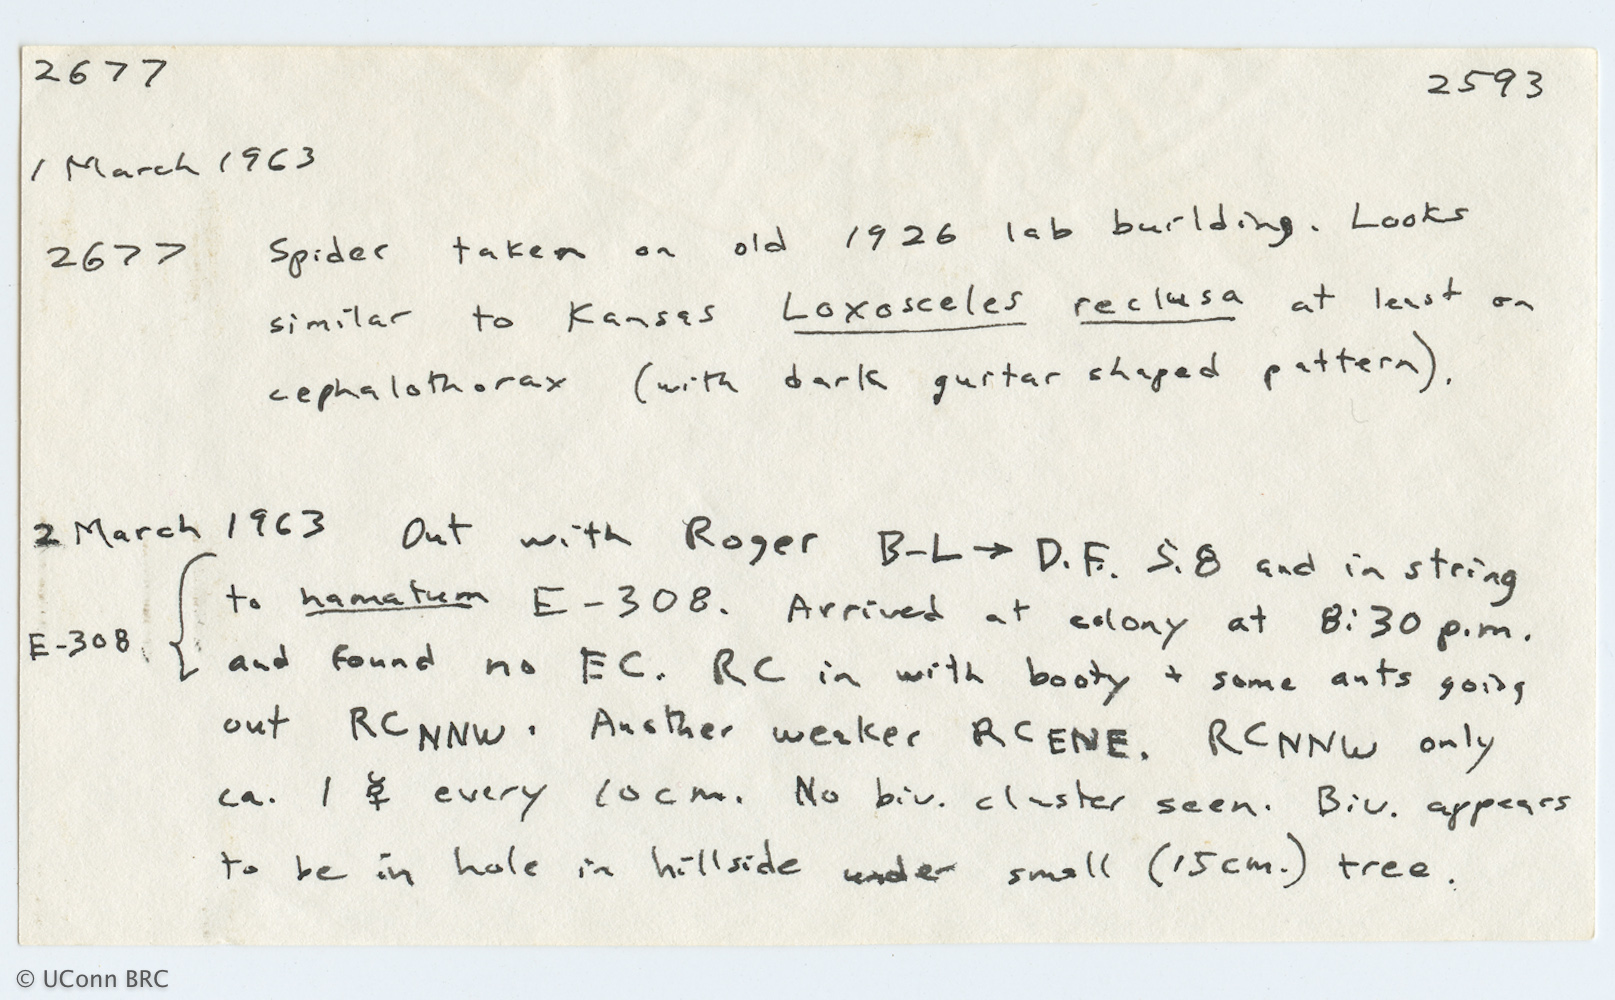 2677 2593
1 March 1963
2677 Spider taken on old 1926 lab building. Looks
similar to Kansas Loxosceles reclusa at least on
cephalothorax (with dark guitar shaped pattern).
2 March 1963 Out with Roger B-L → D.F. 5.8 and in string
to hamatum E-308. Arrived at colony at 8:30 p.m.
E-308 and found no EC. RC in with booty + some ants going
out RCNNW. Another weaker RCENE. RCNNW only
ca. 1 ☿ every 10 cm. No biv. cluster seen. Biv. appears
to be in hole in hillside under small (15 cm.) tree.
© UConn BRC